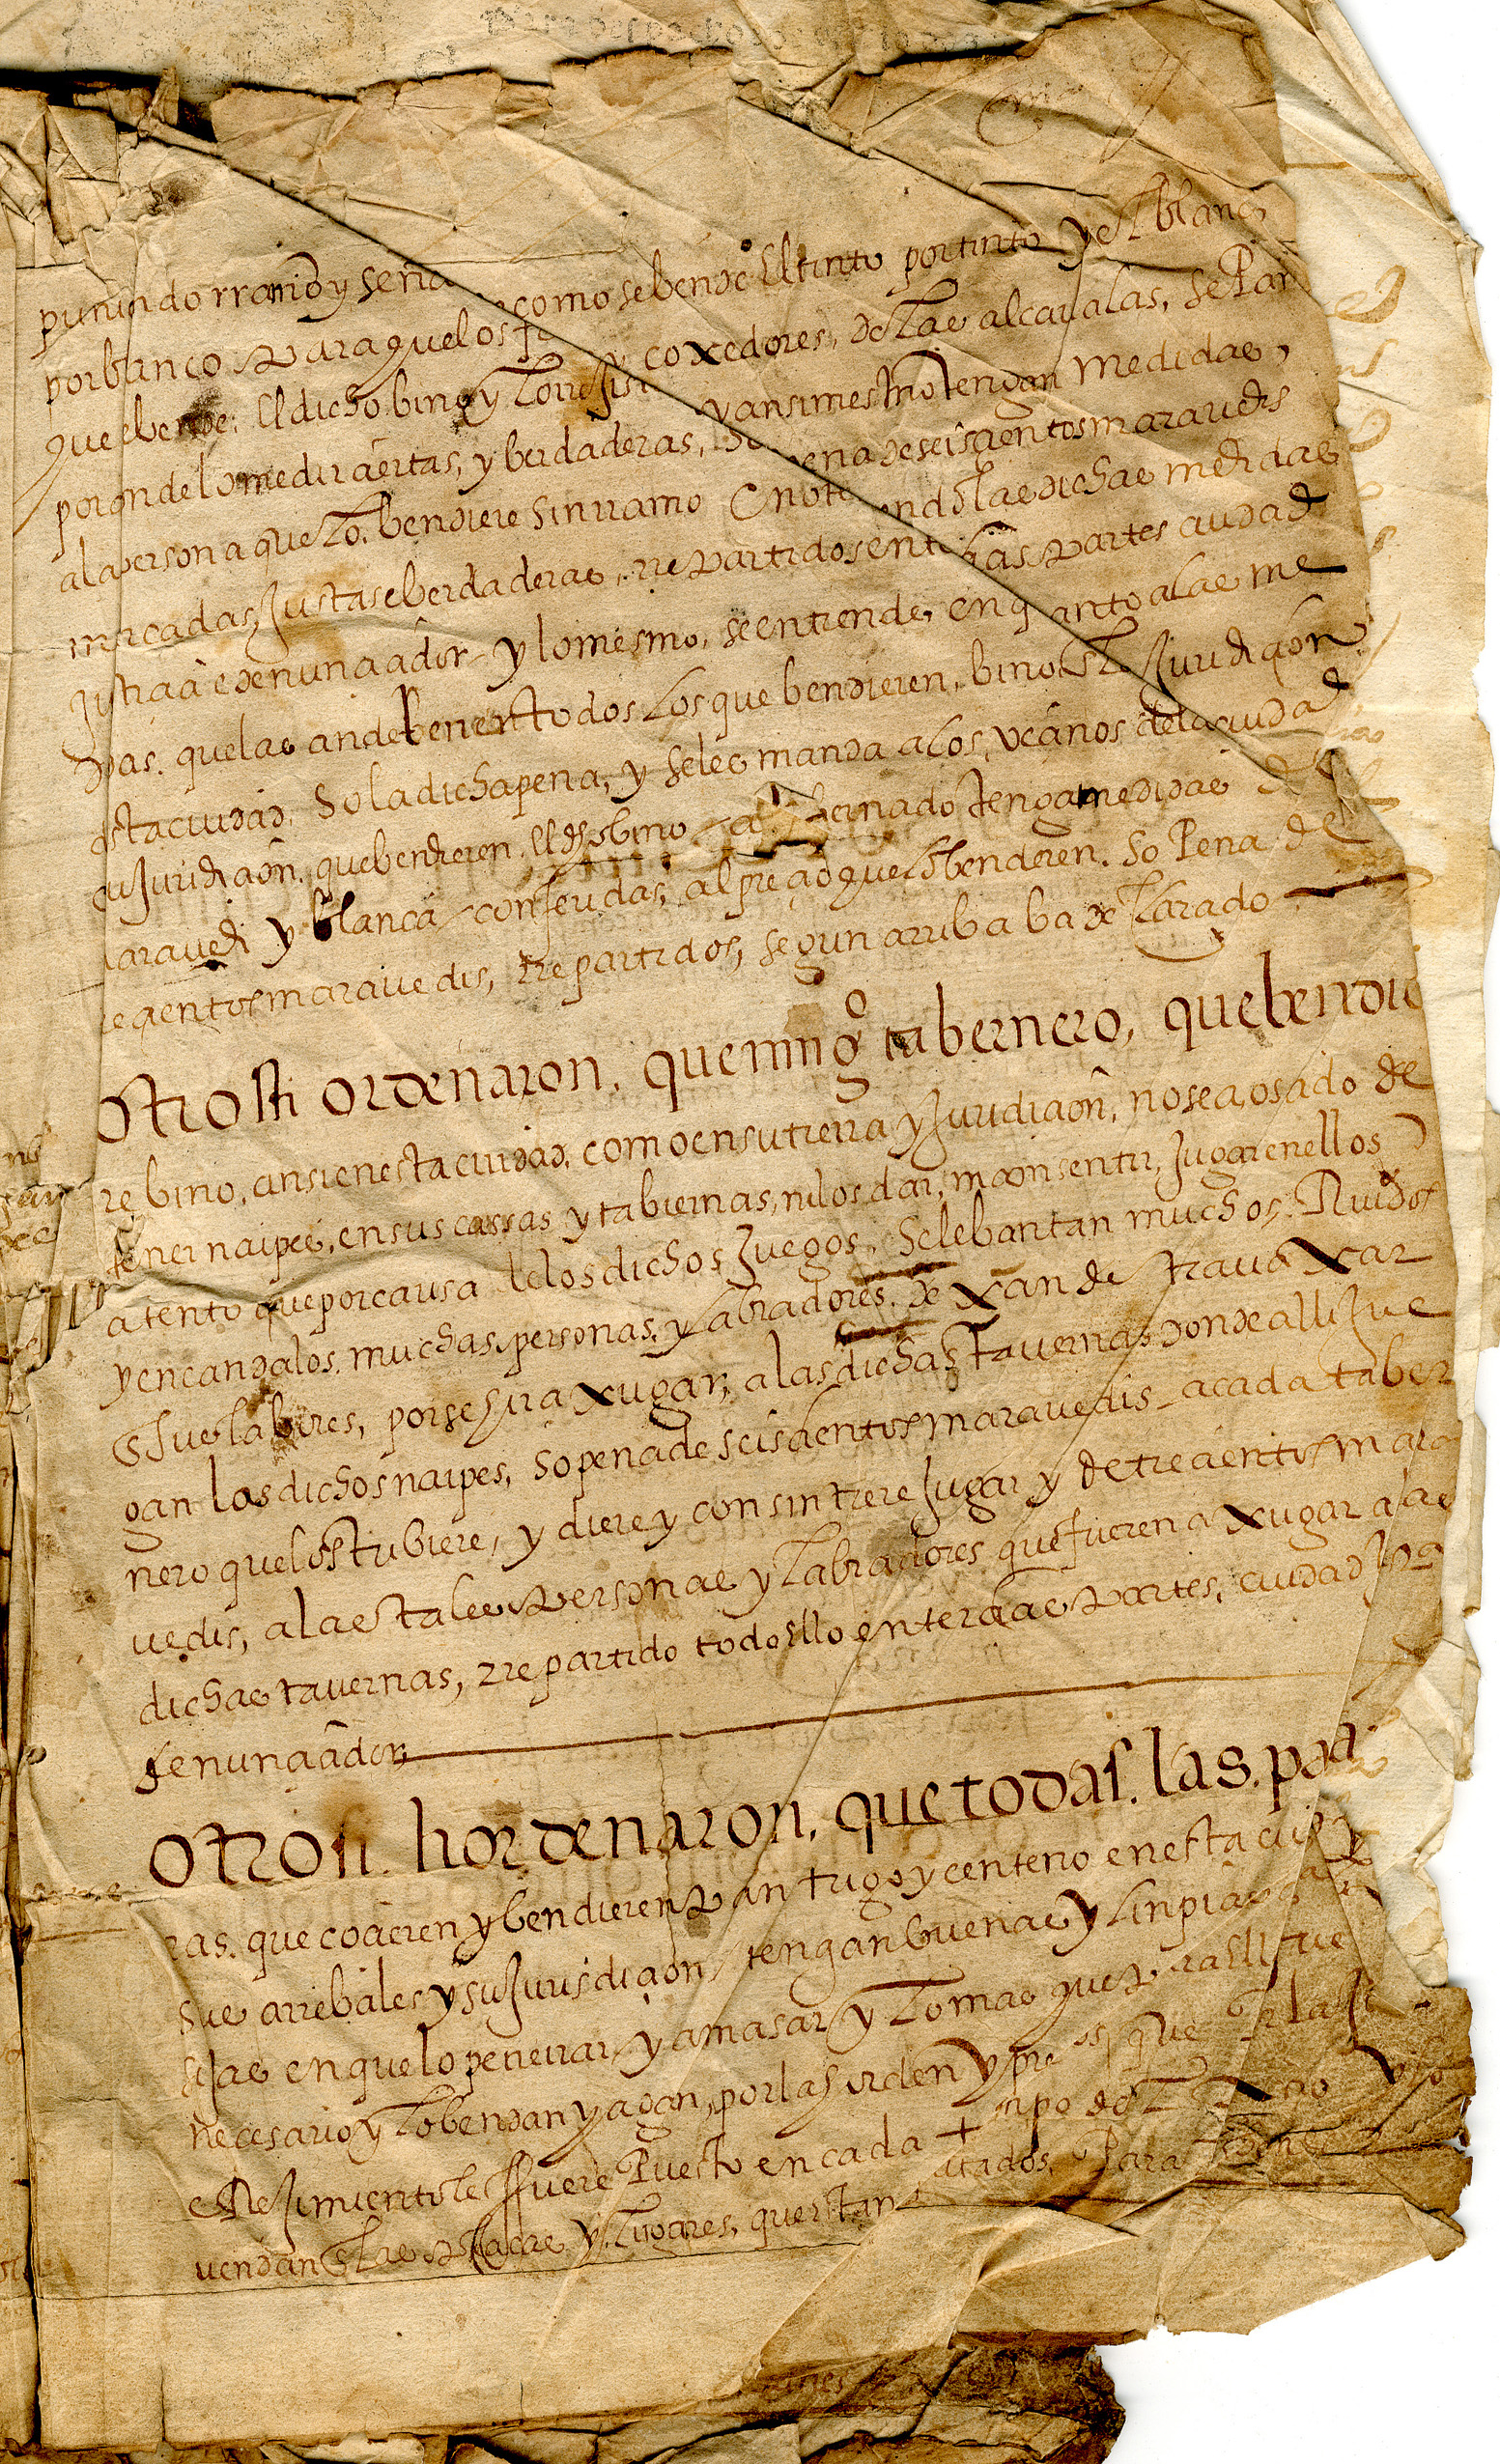 puniendo rramo y seña como se bende El tinto por tinto y el blanco
por blanco Para que los y coxedores, de las alcaualas, sePan
que se bende; El dicho bino y lo y ansimesmo tengan medidas,
por onde lo medir ciertas, y berdaderas, So pena de seiscientos maravedis
a la persona que lo bendiere sin rramo E no tiniendo las dichas medidas
marcadas Justas e berdaderas, rrepartidos en tres Partes ciudad
justicia e denunciador y lo mesmo, se entiende, en quanto a las me
didas. que las an de tener todos los que bendieren, bino Juridicion
esta ciudad, So la dicha pena, y se les manda a los vecinos de la ciudad
su Juridicion. que bendieren El dicho bino tengan medidas de
maravedi y blanca conferidas, al precio que lo benderen. So Pena de
seiscientos maravedis, rrepartidos, segun arriba ba declarado
Otrosi ordenaron, que ningº tabernero, que bendie
re bino, ansi en esta ciudad, como en su tierra y Juridicion, no sea osado de
tener naipes, en sus cassas y tabiernas, ni los dar, ni consentir, Jugar en ellos
atento que por causa de los dichos Juegos, Se lebantan muchos Ruidos
y encandalos. muchas personas, y labradores, dexan de trauaxar
E sus labores, por se yr a xugar, a las dichas Tauernas donde alli Jue
gan los dichos naipes, so pena de seiscientos maravedis a cada taber
nero que los tubiere, y diere y consintiere Jugar y de trecientos mara
uedis, a las tales Personas y labradores que fueren a xugar a las
dichas tauernas, rrepartido todo Ello en tercias Partes, ciudad Jusª
denunciador,
Otrosi. hordenaron, que todas. las. pna
ras. que cocieren y bendieren Pan trigo y centeno en esta ciudad
Sus arrebales y su Jurisdicion, tengan buenas y linpias
en que lo peneirar y amasar y lo mas que Para Ello fue
necesario y lo bendan y agan, por las orden y precios que Por la
e Rejimiento les ffuere Puesto en cada tienpo del
vendan En las Placas y lugares, que estan Para